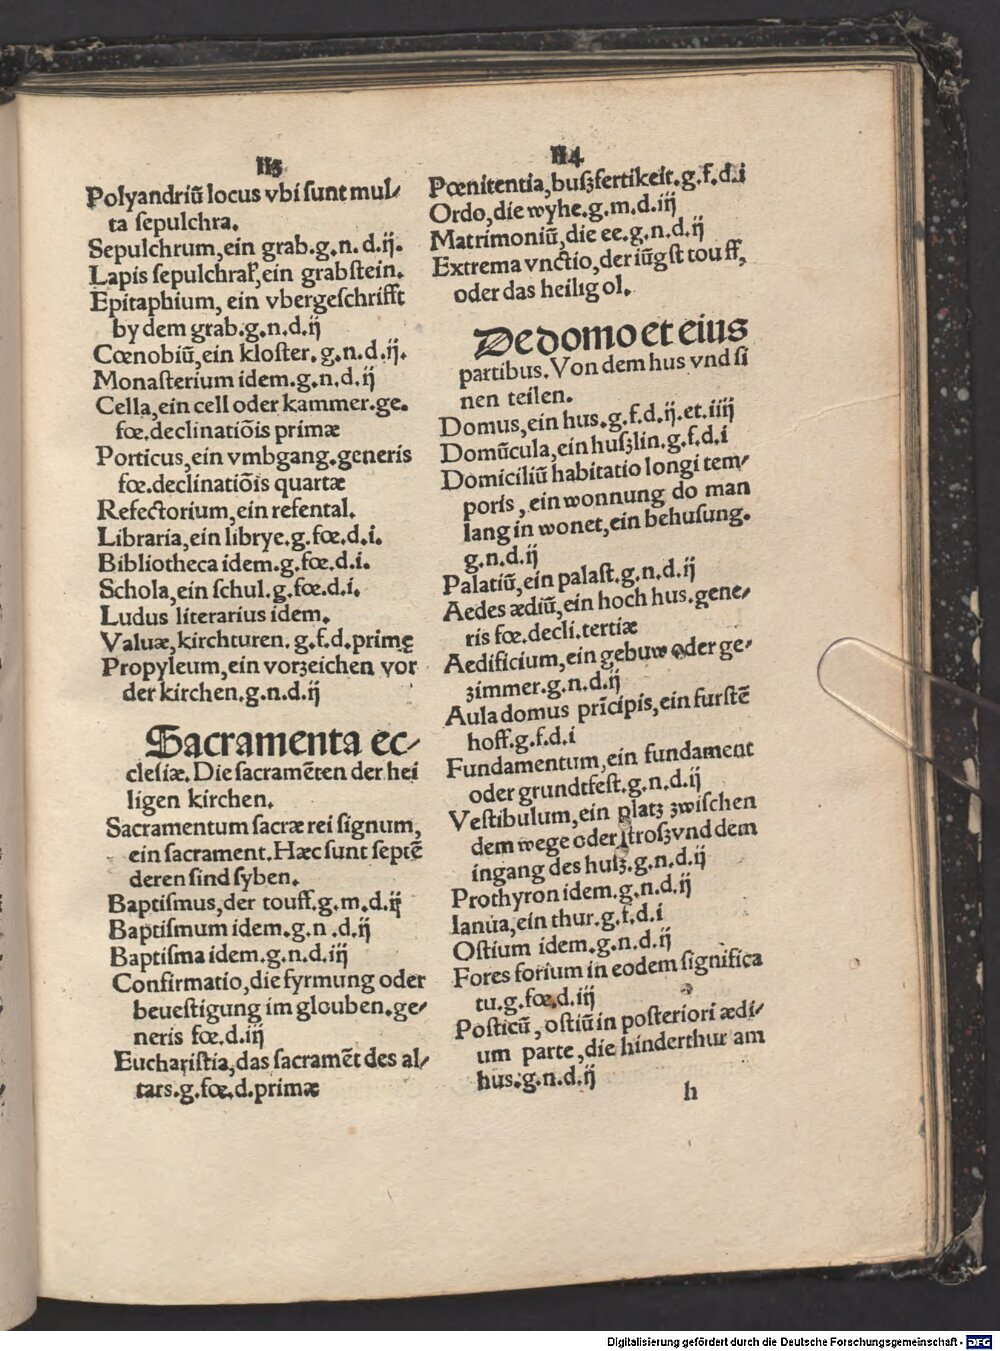 113
Polyandriū locus vbi ſunt mul⸗
ta ſepulchra.
Sepulchrum, ein grab.g.n.d.ij.
Lapis ſepulchraľ, ein grabſtein.
Epitaphium, ein vbergeſchrifft
by dem grab.g.n.d.ij
Cœnobiū, ein kloſter.g.n.d.ij.
Monaſterium idem.g.n.d.ij
Cella, ein cell oder kammer.ge.
fœ.declinatiōis primæ
Porticus, ein vmbgang.generis
fœ.declinatiōis quartæ
Refectorium, ein refental.
Libraria, ein librye.g.fœ.d.i.
Bibliotheca idem.g.fœ.d.i.
Schola, ein ſchul.g.fœ.d.i.
Ludus literarius idem.
Valuæ, kirchturen.g.f.d.primę
Propyleum, ein vorzeichen vor
der kirchen.g.n.d.ij
Sacramenta ec⸗
cleſiæ. Die ſacramēten der hei
ligen kirchen.
Sacramentum ſacræ rei ſignum,
ein ſacrament. Hæc ſunt ſeptē
deren ſind ſyben.
Baptiſmus, der touff.g.m.d.ij
Baptiſmum idem.g.n.d.ij
Baptiſma idem.g.n.d.iij
Confirmatio, die fyrmung oder
beueſtigung im glouben.ge⸗
neris fœ.d.iij
Euchariſtia, das ſacramēt des al⸗
tars.g.fœ.d.primæ
114
Pœnitentia, buſzfertikeit.g.f.d.i
Ordo, die wyhe.g.m.d.iij
Matrimoniū, die ee.g.n.d.ij
Extrema vnctio, der iūgſt touff,
oder das heilig ol.
De domo et eius
partibus. Von dem hus vnd ſi
nen teilen.
Domus, ein hus.g.f.d.ij.et.iiij
Domūcula, ein huſzlin.g.f.d.i
Domiciliū habitatio longi tem⸗
poris, ein wonnung do man
lang in wonet, ein behuſung.
g.n.d.ij
Palatiū, ein palaſt.g.n.d.ij
Aedes ædiū, ein hoch hus.gene⸗
ris fœ.decli.tertiæ
Aedificium, ein gebuw oder ge⸗
zimmer.g.n.d.ij
Aula domus prīcipis, ein furſtē
hoff.g.f.d.i
Fundamentum, ein fundament
oder grundtfeſt.g.n.d.ij
Veſtibulum, ein platz zwiſchen
dem wege oder ſtroſz vnd dem
ingang des huſz.g.n.d.ij
Prothyron idem.g.n.d.ij
Ianua, ein thur.g.f.d.i
Oſtium idem.g.n.d.ij
Fores forium in eodem ſignifica
tu.g.fœ.d.iij
Poſticū, oſtiū in poſteriori ædi⸗
um parte, die hinderthur am
hus.g.n.d.ij
h
Digitalisierung gefördert durch die Deutsche Forschungsgemeinschaft - DFG